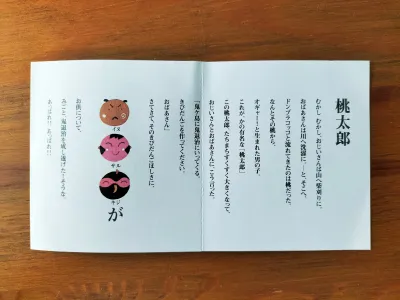 桃太郎
むかし、むかし、おじいさんは山へ柴刈りに、
おばあさんは川へ洗濯に…と、そこへ、
ドンブラコッコと流れてきたのは桃だった。
なんとその桃から、
オギャー！！と生まれた男の子。
これが、かの有名な「桃太郎」
この桃太郎、たちまちすくすく大きくなって、
おじいさんとおばあさんに、こう言った。
「鬼ヶ島に鬼退治にいってくる。
きびだんごを作ってください、
おばあさん」
さてさて、そのきびだんごほしさに、
イヌ
サル
キジ
が
お供について、
みごと、鬼退治を成し遂げた！そうな。
あっぱれ！！あっぱれ！！